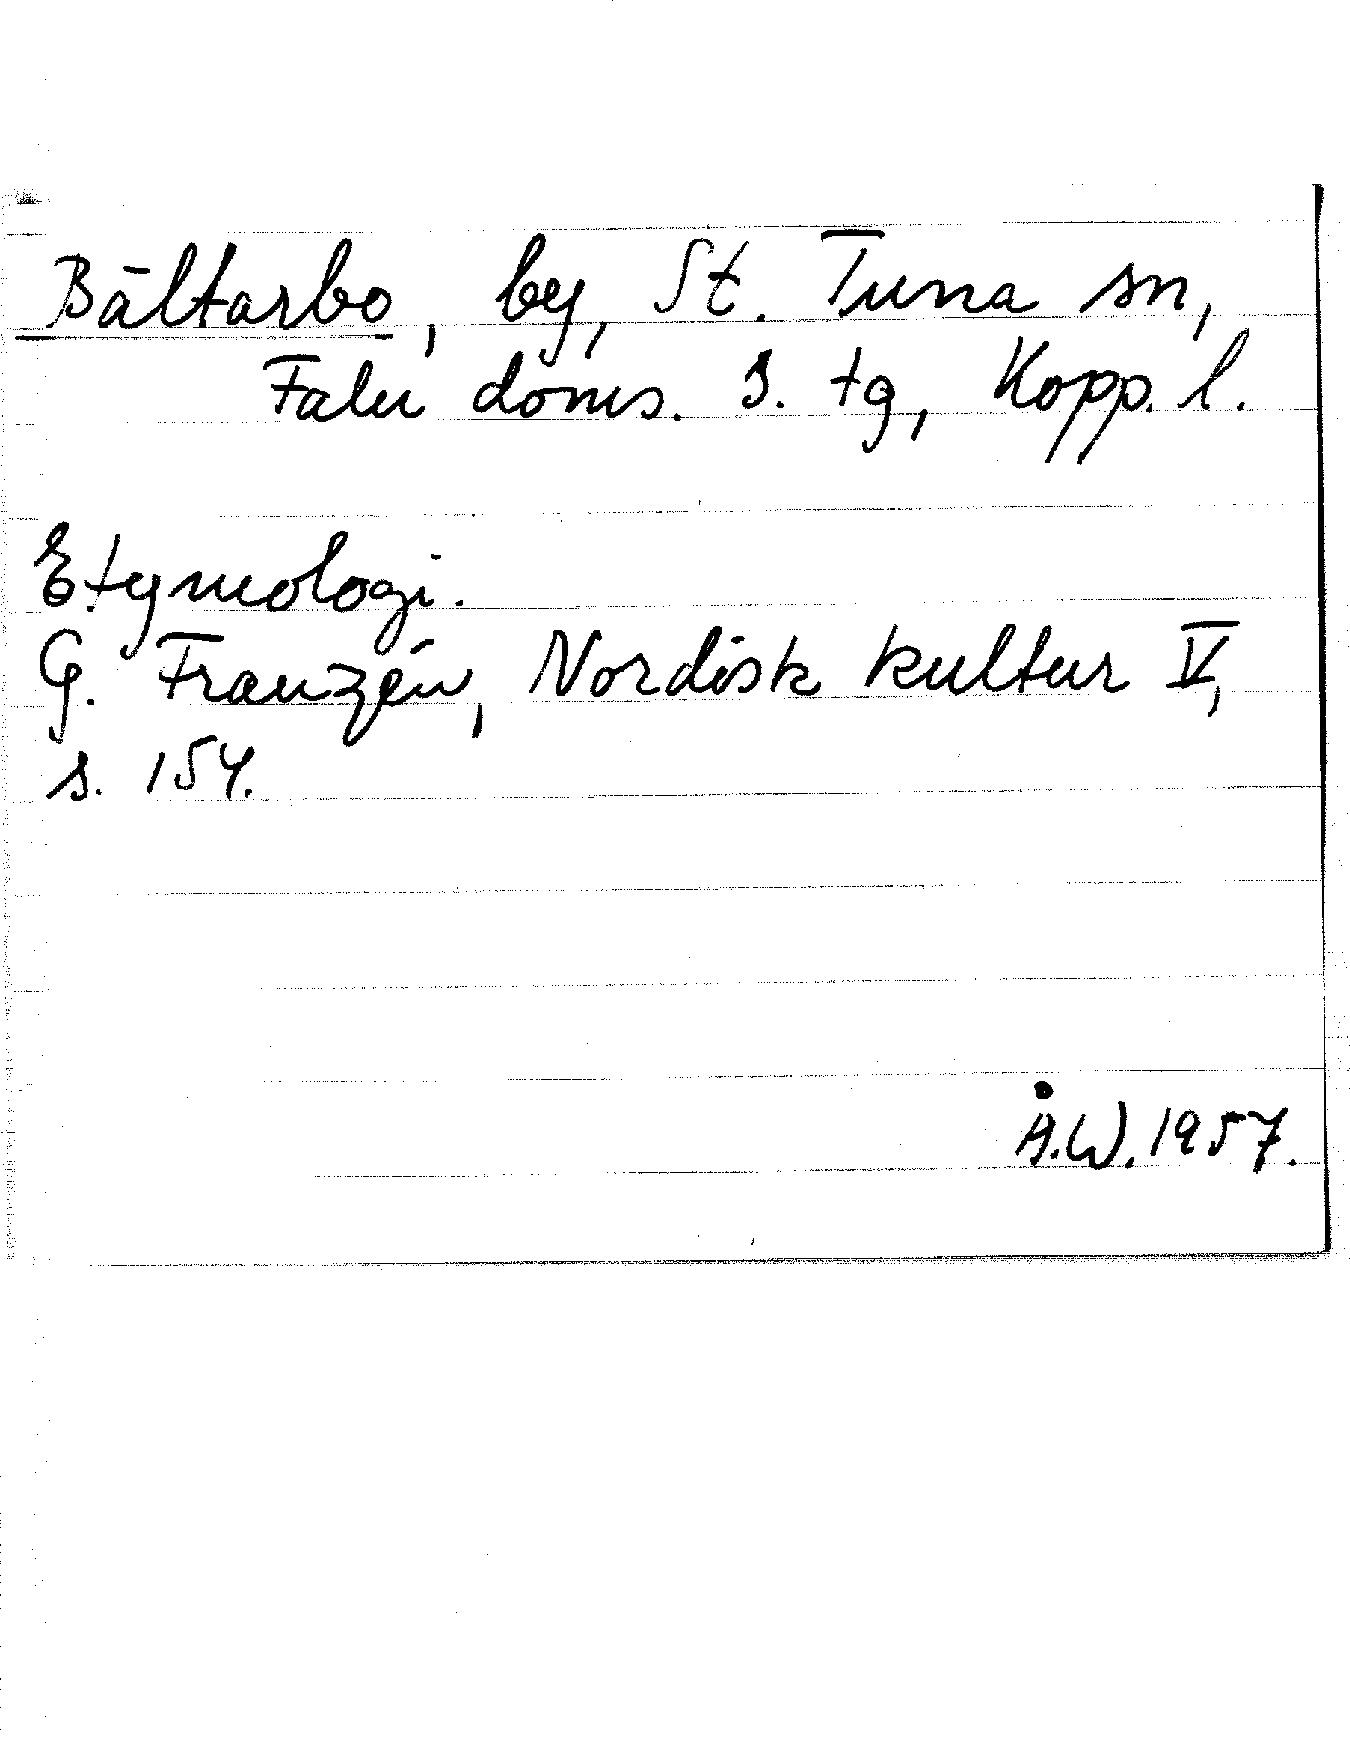 Bältarbo, by, St. Tuna sn,
Falu doms. s. tg, Kopp. l.
Etymologi.
G. Franzén, Nordisk kultur V,
s. 154.
Å.W. 1957.